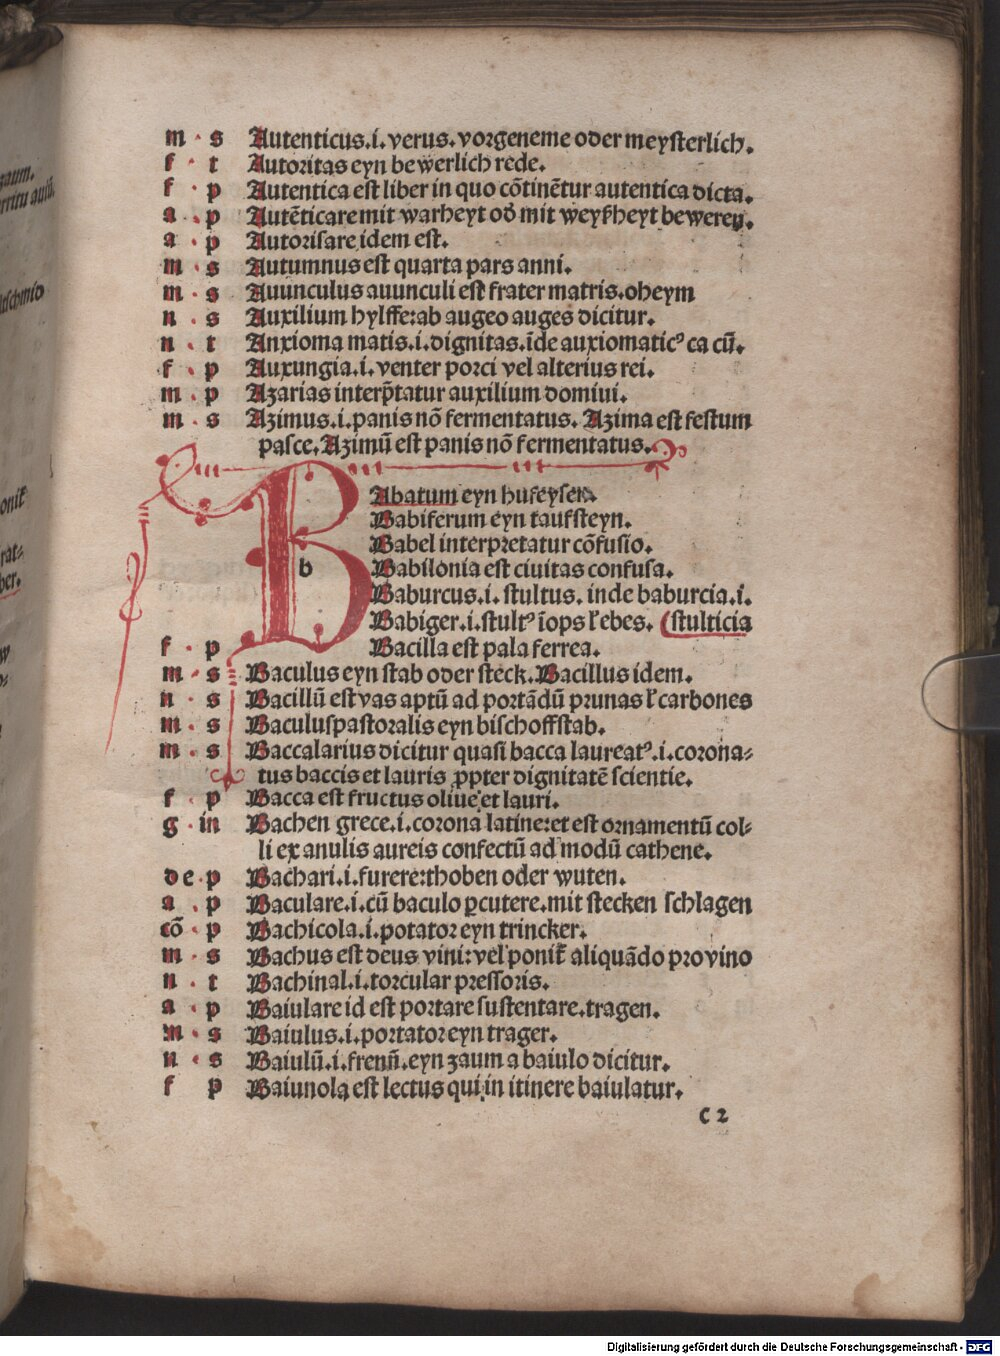 m · s Autenticus.i. verus. vorgeneme oder meysterlich.
f · t Autoritas eyn bewerlich rede.
f · p Autentica est liber in quo cōtinētur autentica dicta.
a · p Autēticare mit warheyt od̄ mit weyſheyt beweren.
a · p Autoriſare idem est.
m · s Autumnus est quarta pars anni.
m · s Auunculus auunculi est frater matris. oheym
n · s Auxilium hylffe: ab augeo auges dicitur.
n · t Anxioma matis.i. dignitas. īde auxiomaticꝰ ca cū.
f · p Auxungia.i. venter porci vel alterius rei.
m · p Azarias interp̄tatur auxilium domini.
m · s Azimus.i. panis nō fermentatus. Azima est festum
paſce. Azimū est panis nō fermentatus.
B b
Abatum eyn hufeyſen.
Babiferum eyn taufsteyn.
Babel interpretatur cōfuſio.
Babilonia est ciuitas confuſa.
Baburcus.i. stultus. inde baburcia.i.
Babiger.i. stultꝰ īops ł ebes. (stulticia
f · p Bacilla est pala ferrea.
m · s Baculus eyn stab oder steck. Bacillus idem.
n · s Bacillū est vas aptū ad portādū prunas ł carbones
m · s Baculuſpastoralis eyn biſchoffstab.
m · s Baccalarius dicitur quaſi bacca laureatꝰ.i. corona⸗
tus baccis et lauris ꝓpter dignitatē ſcientie.
f · p Bacca est fructus oliue et lauri.
g · in Bachen grece.i. corona latine: et est ornamentū col⸗
li ex anulis aureis confectū ad modū cathene.
de · p Bachari.i. furere: thoben oder wuten.
a · p Baculare.i. cū baculo ꝑcutere. mit stecken ſchlagen
cō · p Bachicola.i. potator eyn trincker.
m · s Bachus est deus vini: vel ponit̄ aliquādo pro vino
n · t Bachinal.i. torcular preſſoris.
a · p Baiulare id est portare ſustentare. tragen.
m · s Baiulus.i. portator eyn trager.
n · s Baiulū.i. frenū. eyn zaum a baiulo dicitur.
f p Baiunola est lectus qui in itinere baiulatur.
c 2
Digitalisierung gefördert durch die Deutsche Forschungsgemeinschaft - DFG